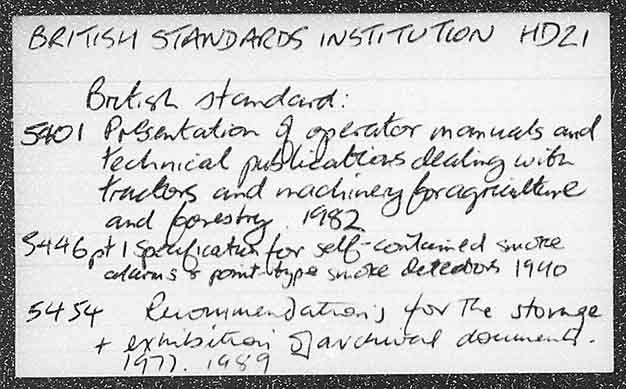 BRITISH STANDARDS INSTITUTION HD21
British standard:
5401 Presentation of operator manuals and
technical publications dealing with
tractors and machinery for agriculture
and forestry 1982
5446 pt 1 Specification for self-contained smoke
alarms & point-type smoke detectors 1990
5454 Recommendations for the storage
+ exhibition of archival documents.
1977. 1989